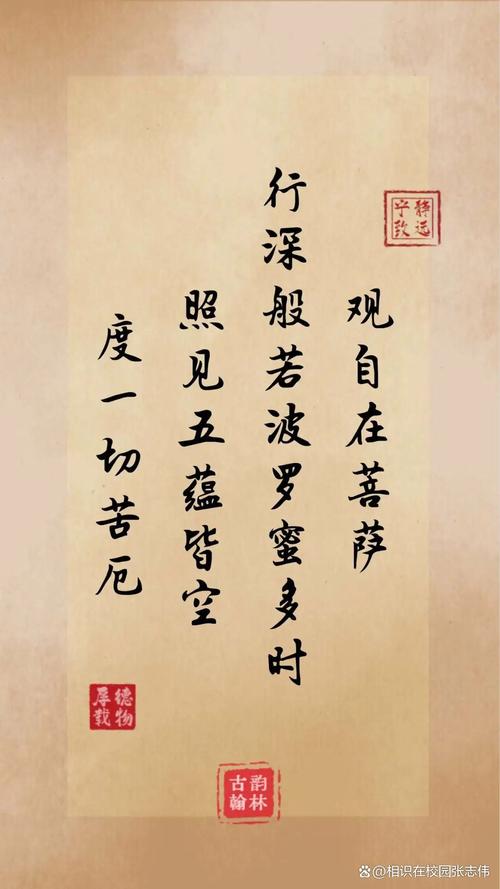 观自在菩萨
行深般若波罗蜜多时
照见五蕴皆空
度一切苦厄
静远
宁致
德物
厚载
韵林
古翰
@相识在校园张志伟